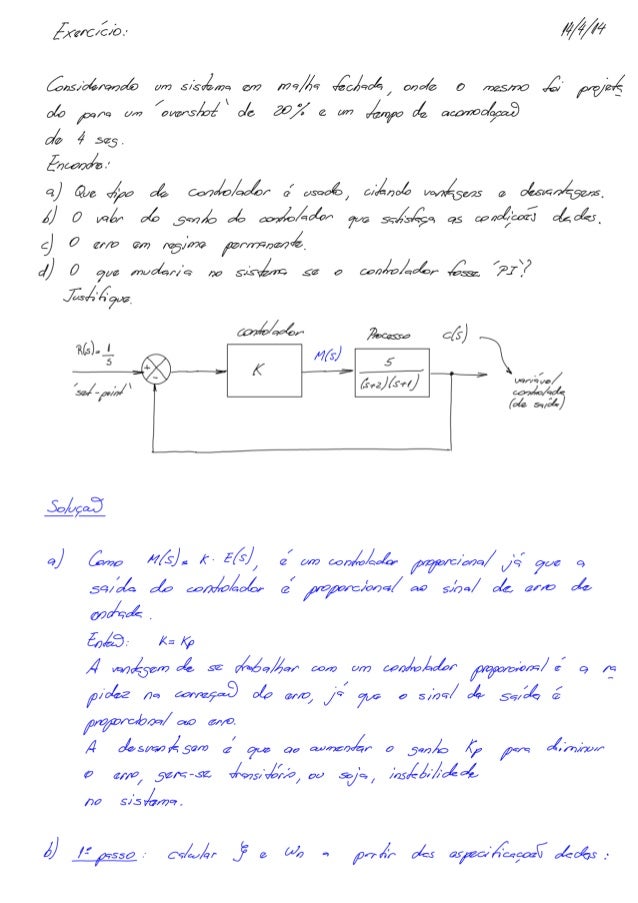 Exercício: 14/4/14
Considerando um sistema em malha fechada, onde o mesmo foi projeta
do para um 'overshot' de 20% e um tempo de acomodação
de 4 seg.
Encontre:
a) Que tipo de controlador é usado, citando vantagens e desvantagens.
b) O valor do ganho do controlador que satisfaça as condições dadas.
c) O erro em regime permanente.
d) O que mudaria no sistema se o controlador fosse 'PI'?
Justifique.
controlador Processo C(s)
R(s) = 1/s
+
-
K
M(s)
5/(s+2)(s+1)
'set-point'
variável
controlada
(de saída)
Solução
a) Como M(s) = K. E(s), é um controlador proporcional já que a
saída do controlador é proporcional ao sinal de erro de
entrada.
Então: K = Kp
A vantagem de se trabalhar com um controlador proporcional é a ra
pidez na correção do erro, já que o sinal da saída é
proporcional ao erro.
A desvantagem é que ao aumentar o ganho Kp para diminuir
o erro, gera-se transitório, ou seja, instabilidade
no sistema.
b) 1º passo: calcular ξ e Wn a partir das especificações dadas: